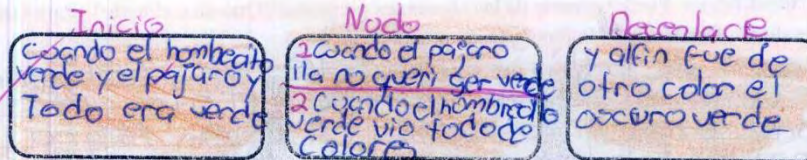 Inicio
Cuando el hombecito
verde y el pajaro y
Todo era verde
Nudo
1 Cuando el pajaro
lla no queri ser verde
2 Cuando el hombrecito
verde vio todo de
Colores
Decenlace
y alfin fue de
otro color el
oscuro verde